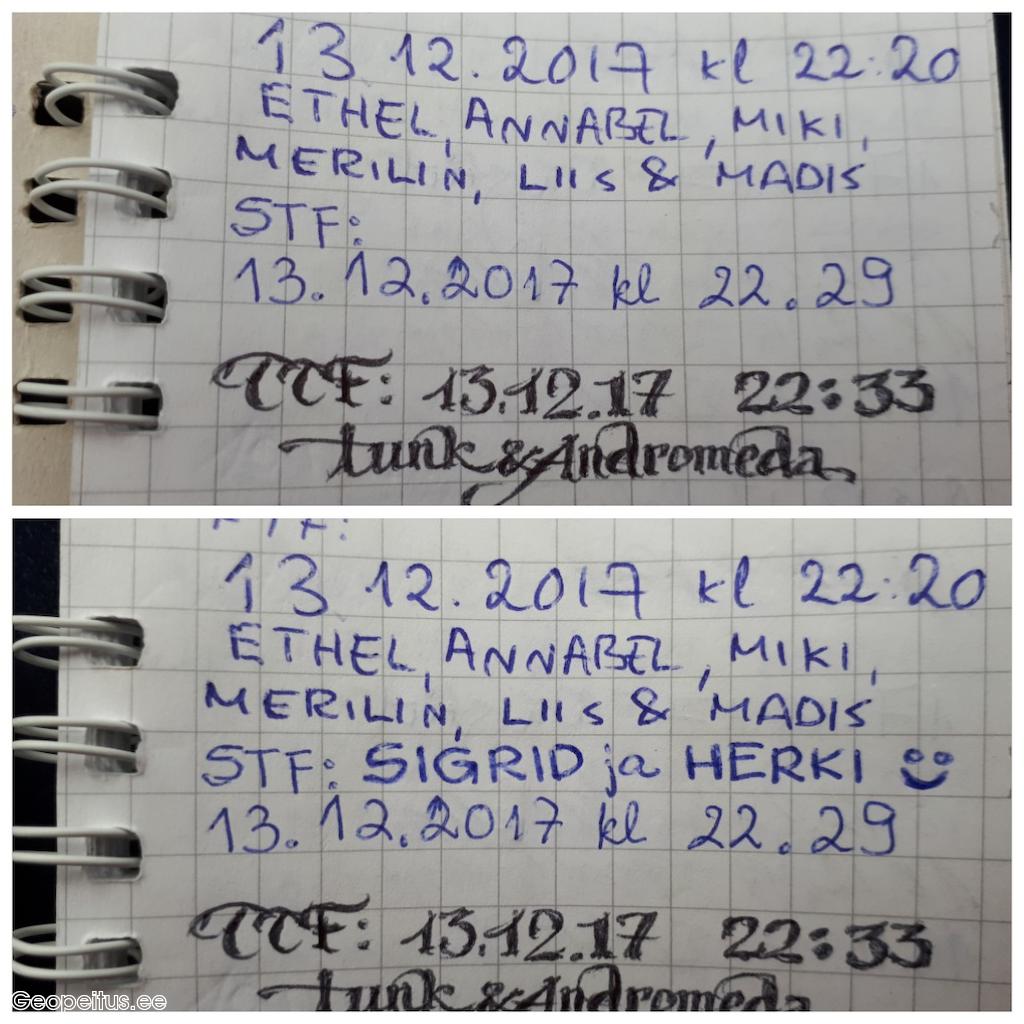 13 12.2017 kl 22:20
ETHEL, ANNABEL, MIKI,
MERILIN, LIIS & MADIS
STF:
13.12.2017 kl 22.29
TCF: 13.12.17 22:33
tunk & Andromeda
13 12.2017 kl 22:20
ETHEL, ANNABEL, MIKI,
MERILIN, LIIS & MADIS
STF: SIGRID ja HERKI
13.12.2017 kl 22.29
TCF: 13.12.17 22:33
tunk & Andromeda
Geopeitus.ee